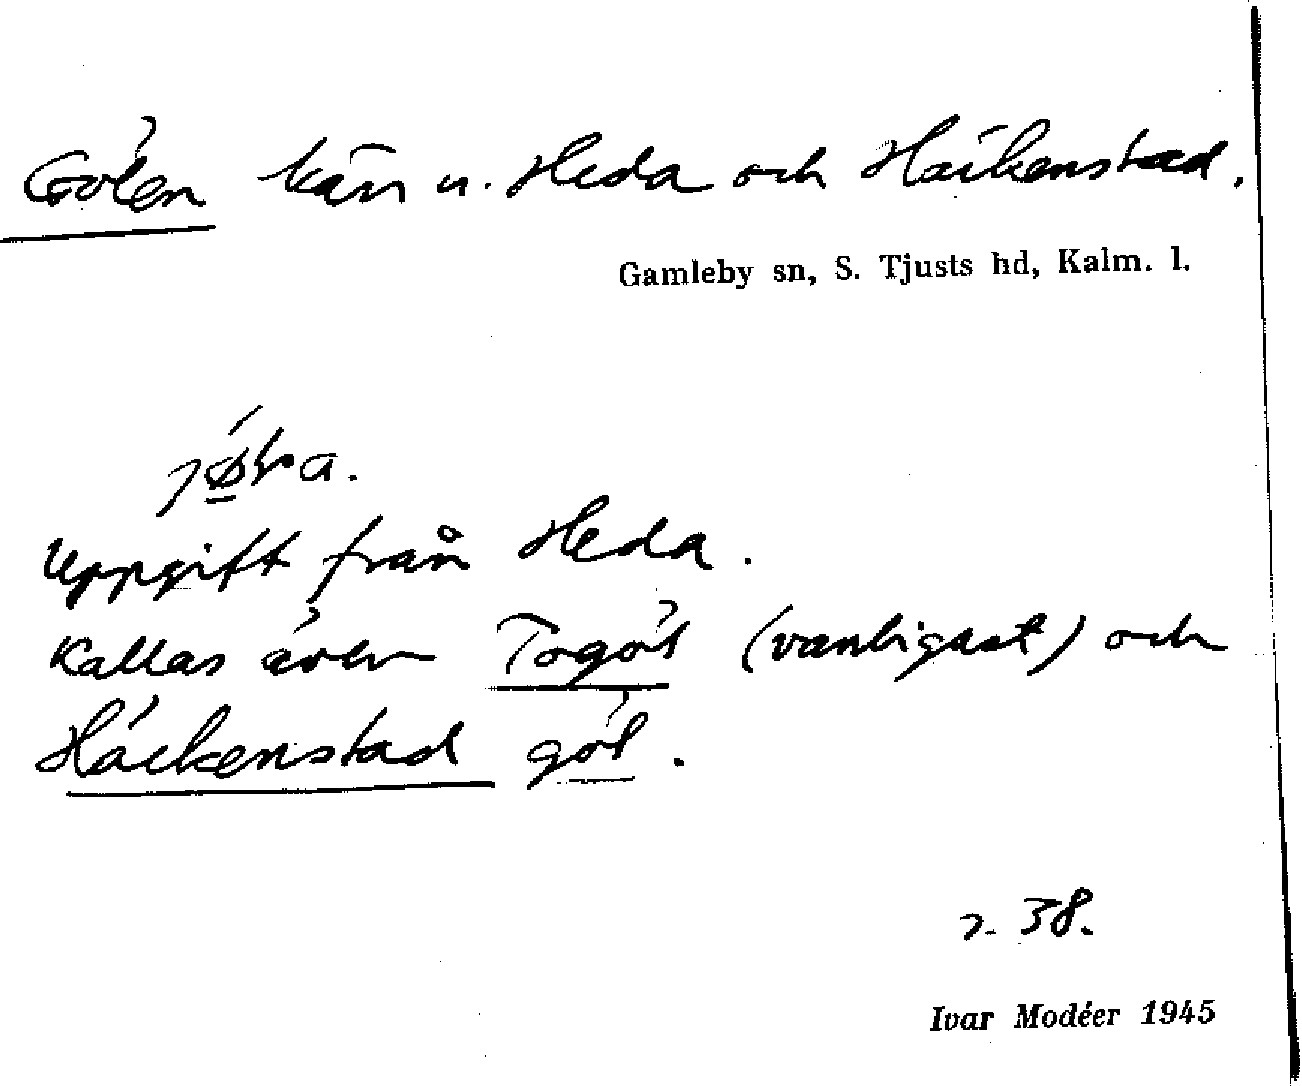 Gölen kärr u. Heda och Häckenstad.
Gamleby sn, S. Tjusts hd, Kalm. l.
Uppgift från Heda.
Kallas även Togöl (vanligast) och
Häckenstad göl.
r. 38.
Ivar Modéer 1945